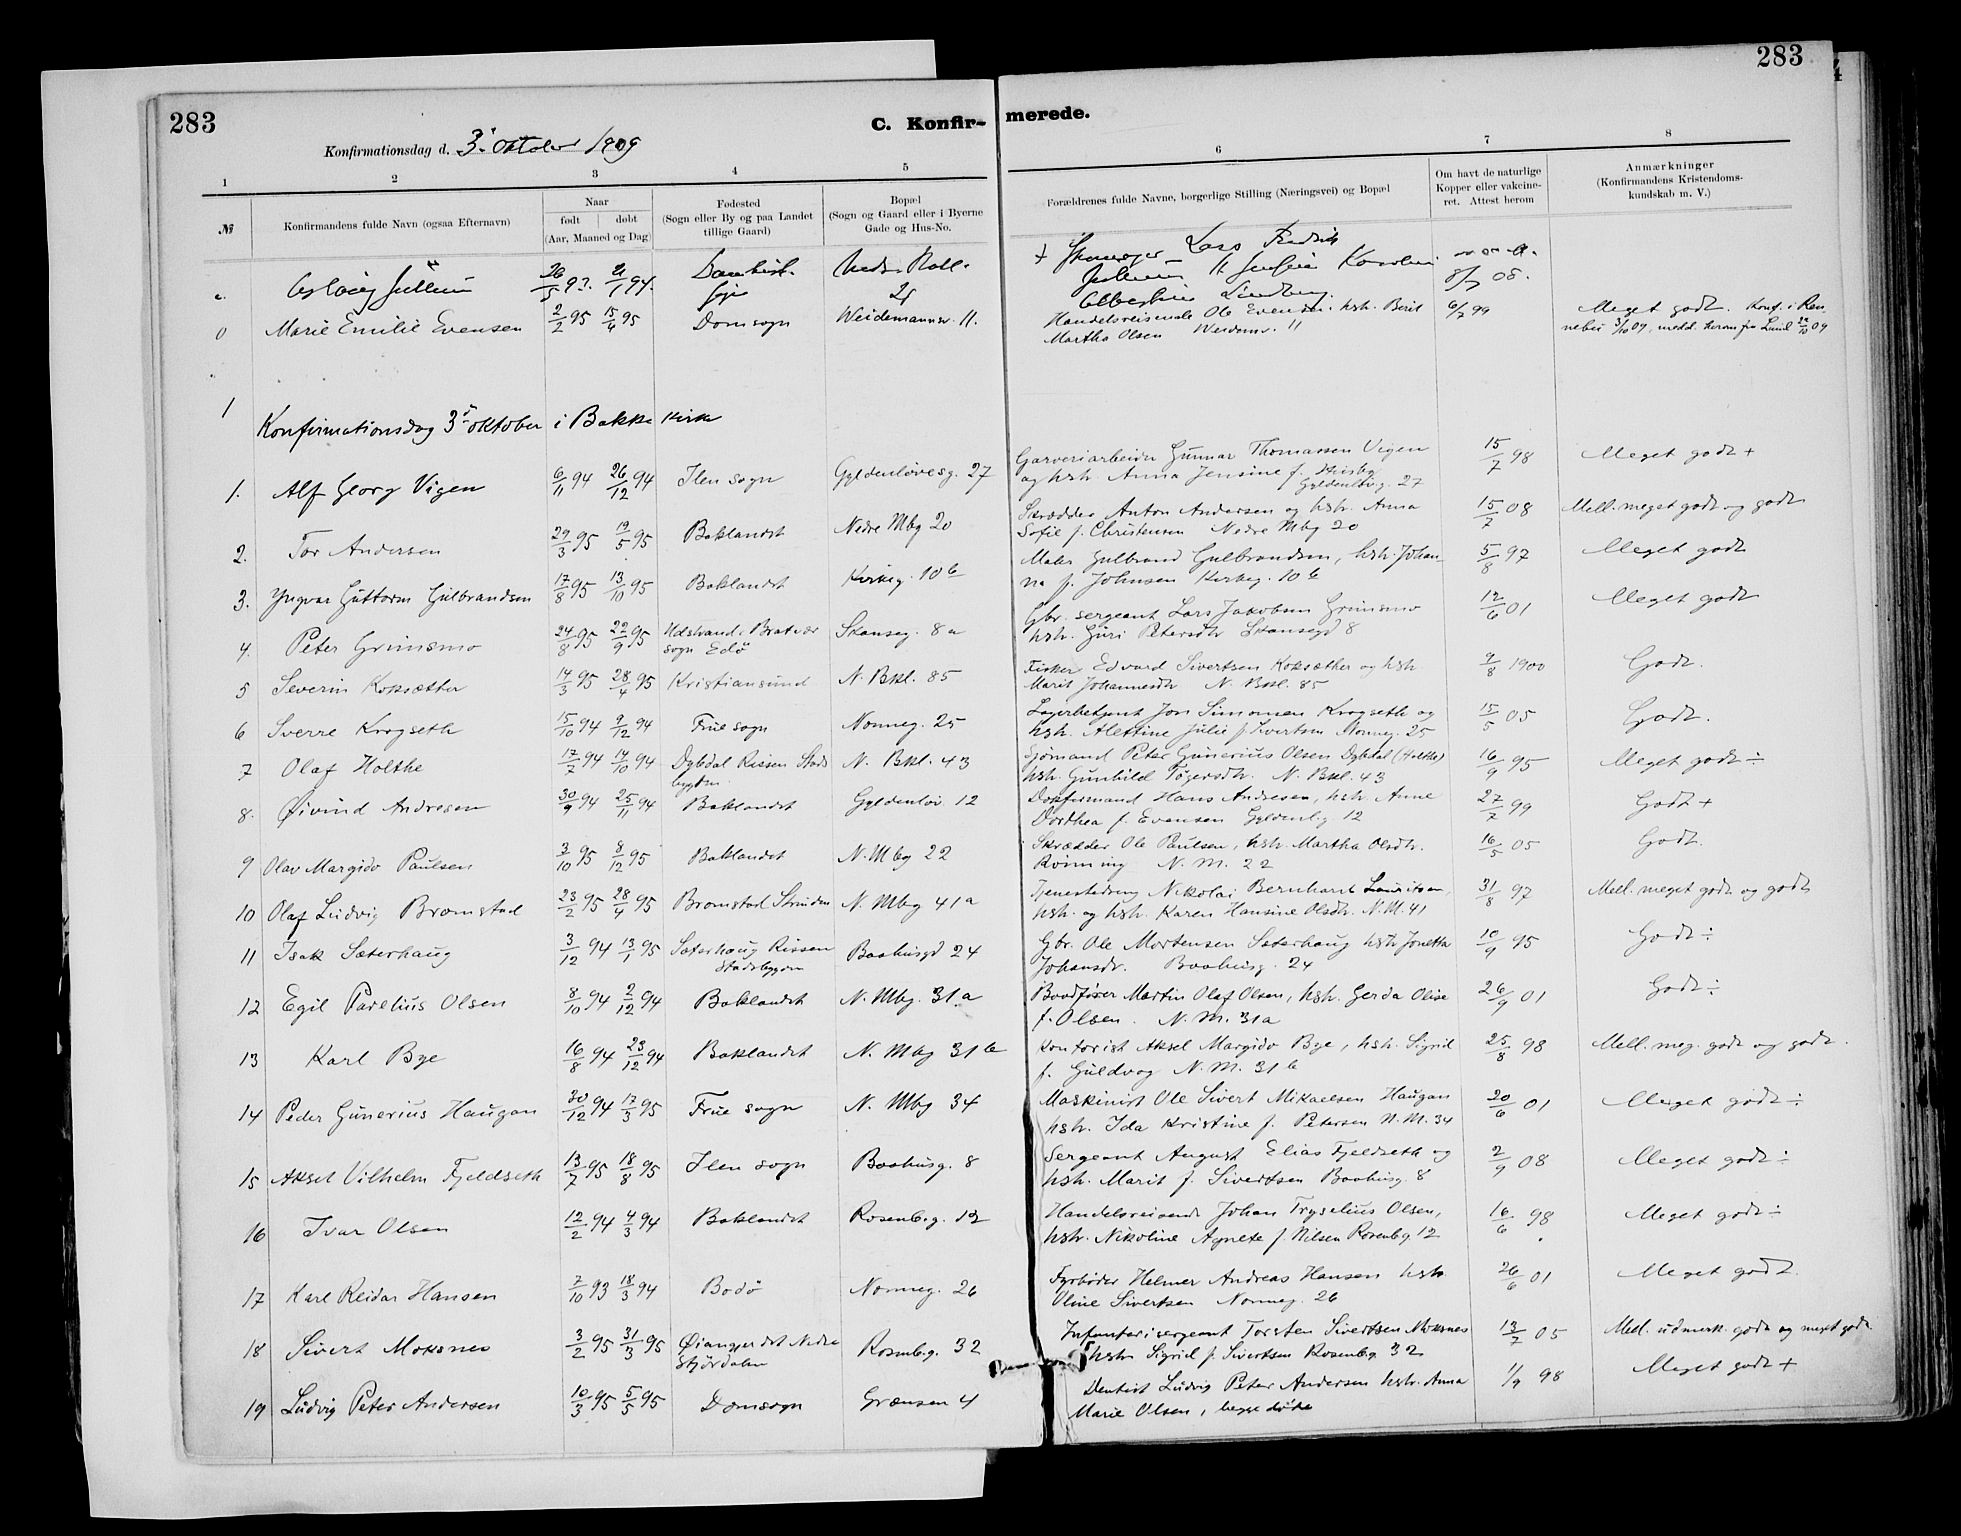 283
283
C. Konfirmerede.
Konfirmationsdag d. 3. oktober 1909
1 2 3 4 5 6 7 8
№ Konfirmandens fulde Navn (ogsaa Efternavn)
Naar født døbt (Aar, Maaned og Dag)
Fødested (Sogn eller By og paa Landet tillige Gaard)
Bopæl (Sogn og Gaard eller i Byerne Gade og Hus-No.
Forældrenes fulde Navne, borgerlige Stilling (Næringsvei) og Bopæl
Om havt de naturlige Kopper eller vakcineret. Attest herom
Anmærkninger (Konfirmandens Kristendomskundskab m. V.)
Lars Fredrik
8/7 08.
0 Marie Emilie Evensen 2/2 95 15/4 95 Domsogn Weidemannsv. 11. Handelsreisende Ole Evensen. hstr. Berit 6/7 99 Meget godt. Konf. i Ren
Martha Olsen Weidemv. 11 nebu 3/10 09, medd. herom fra Lund 22/10 09
1 Konfirmationsdag 3. oktober i Bakke Kirke
1. Alf Georg Vigen 6/11 94 26/12 94 Ilen sogn Gyldenløvesg. 27 Garveriarbeider Gunnar Thomassen Vigen 15/7 98 Meget godt +
og hstr. Anna Jensine f. Gyldenløvg. 27
2. Tor Andersen 29/3 95 19/5 95 Baklandet Nedre Mbg 20 Skrædder Anton Andersen og hstr. Anna 15/7 08 Mell. meget godt og godt
Sofie f. Christensen Nedre Mbg 20
3. Yngvar Guttorm Gulbrandsen 17/8 95 13/10 95 Baklandet Kirkeg. 10 b Maler Gulbrand Gulbrandsen, hstr. Johan- 5/8 97 Meget godt
na f. Johnsen Kirkeg. 10 b
4. Peter Grimsmo 24/8 95 22/9 95 Hdstrand, Bratvær Skanseg. 8 a Gbr. sergeant Lars Jakobsen Grimsmo 12/6 01 Meget godt
sogn Edö hstr. Guri Petersdtr Skansegd 8
5 Severin Koksæther 14/3 95 28/4 95 Kristiansund N. Bkl. 85 Fisker Edvard Sivertsen Koksæther og hstr. 9/8 1900 Godt.
Marit Johannesdtr N. Bkl. 85
6 Sverre Krogseth 15/10 94 9/12 94 Frue sogn Nonneg. 25 Lagerbetjent Jon Simonsen Krogseth og 15/5 05 Godt.
hstr. Alettine Julie f. Sivertsen Nonneg. 25
7 Olaf Holthe 17/7 94 14/10 94 Dybdal Rissen Stads N. Bkl. 43 Sjömand Peter Gunerius Olsen Dybdal (Holthe) 16/9 95 Meget godt ÷
bygden hstr. Gunhild Tögersdtr. N. Bkl. 43
8. Øivind Andresen 30/9 94 25/11 94 Baklandet Gyldenløv. 12 Dokformand Hans Andresen, hstr. Anne 27/7 99 Godt +
Dorthea f. Evensen Gyldenlg. 12
9 Olav Margido Paulsen 3/10 95 8/12 95 Baklandet N. Mbg 22 Skrædder Ole Paulsen, hstr. Martha Olsdtr. 16/5 05 Godt.
Rönning N. M. 22
10 Olaf Ludvig Bromstad 23/2 95 28/4 95 Bromstad Strinden N. Mbg 41a Tjenestedreng Nikolai Bernhard Lauritsen, 31/8 97 Mell. meget godt og godt
hstr. og hstr. Karen Hansine Olsdtr. N. M. 41
11 Isak Sæterhaug 3/12 94 13/1 95 Sæterhaug Rissen Baahusgd 24 Gbr. Ole Mortensen Sæterhaug hstr Jonetta 10/9 95 Godt ÷
Stadsbygden Johansdr. Baahusg. 24
12 Egil Parelius Olsen 8/10 94 2/12 94 Baklandet N. Mbg. 31.a Bandfører Martin Olaf Olsen, hstr. Gerda Olise 26/9 01 Godt ÷
f. Olsen. N. M. 31a
13 Karl Bye 16/8 94 23/12 94 Baklandet N. Mbg 31 b Kontorist Aksel Margido Bye, hstr. Sigrid 25/8 98 Mell. meg. godt og godt.
f. Guldvog N. M. 31 b
14 Peder Gunerius Haugan 30/12 94 17/3 95 Frue sogn N. Mbg 34 Maskinist Ole Sivert Mikaelsen Haugan 20/6 01 Meget godt ÷
hstr. Ida Kristine f. Petersen N. M. 34
15 Aksel Vilhelm Fjeldseth 13/7 95 18/8 95 Ilen sogn Baahusg. 8 Sergeant August Elias Fjeldseth og 2/9 08 Meget godt ÷
hstr. Marit f. Sivertsen Baahusg. 8
16 Ivar Olsen 12/2 94 4/3 94 Baklandet Rosenb.g. 12 Handelsreisende Johan Trygelius Olsen, 16/6 98 Meget godt ÷
hstr. Nikoline Agnete f. Nilsen Rosenbg 12
17 Karl Reidar Hansen 7/10 93 18/3 94 Bodö Nonneg. 26 Fyrbøder Helmer Andreas Hansen hstr 26/6 01 Meget godt.
Oline Sivertsen Nonneg. 26
18 Sivert Moksnes 3/2 95 31/3 95 Øiangerdet Nedre Rosenb.g. 32 Infanterisergeant Torsten Sivertsen Moksnes 13/7 05 Mel. udmerk. godt og meget godt
Stjördalen hstr Sigrid f. Sivertsen Rosenbg 32
19 Ludvig Peter Andersen 10/3 95 5/5 95 Domsogn Grænsen 4 Dentist Ludvig Peter Andersen hstr. Anna 1/9 98 Meget godt +
Marie Olsen, begge döde